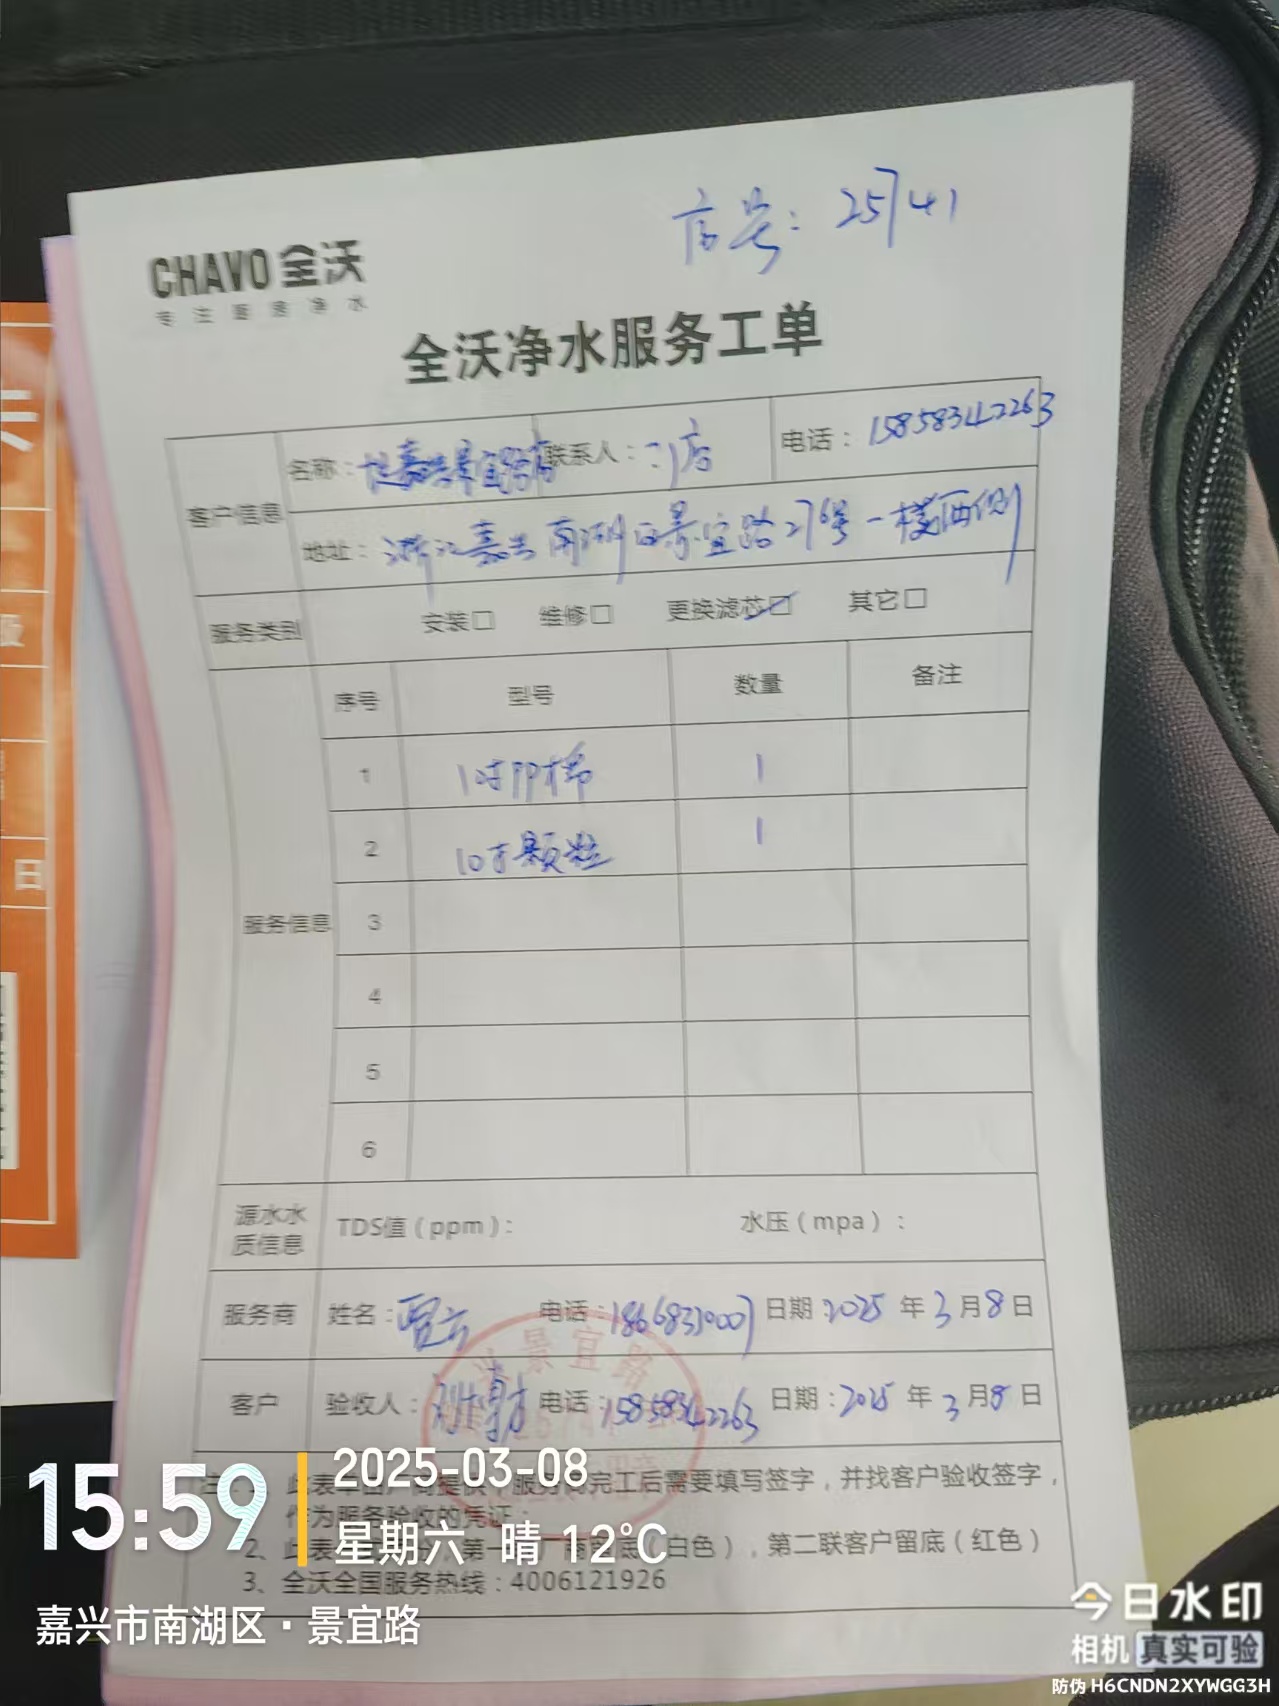 店号：25741
CHAVO 全沃
专注直饮净水
全沃净水服务工单
客户信息 名称：嘉兴景宜路店 联系人：门店 电话：15858342263
地址：浙江嘉兴南湖区景宜路276号一楼西侧
服务类别 安装□ 维修□ 更换滤芯☑ 其它□
服务信息 序号 型号 数量 备注
1 10寸PP棉 1
2 10寸颗粒 1
3
4
5
6
源水水质信息 TDS值（ppm）： 水压（mpa）：
服务商 姓名： 电话：18668370007 日期：2025年3月8日
客户 验收人： 电话：15858342263 日期：2025年3月8日
景宜路
服务商完工后需要填写签字，并找客户验收签字，
作为服务验收的凭证；
2、此表 第一 厂商留底（白色），第二联客户留底（红色）
3、全沃全国服务热线：4006121926
15:59
2025-03-08
星期六 晴 12°C
嘉兴市南湖区·景宜路
今日水印
相机 真实可验
防伪 H6CNDN2XYWGG3H
日